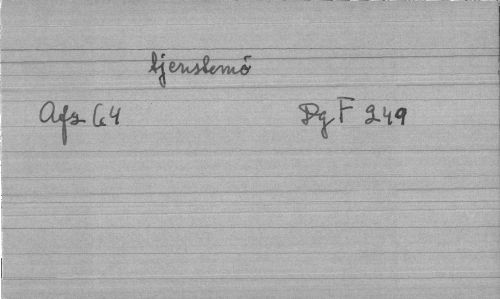 tjenstemö
Afz C4 Dg F 249